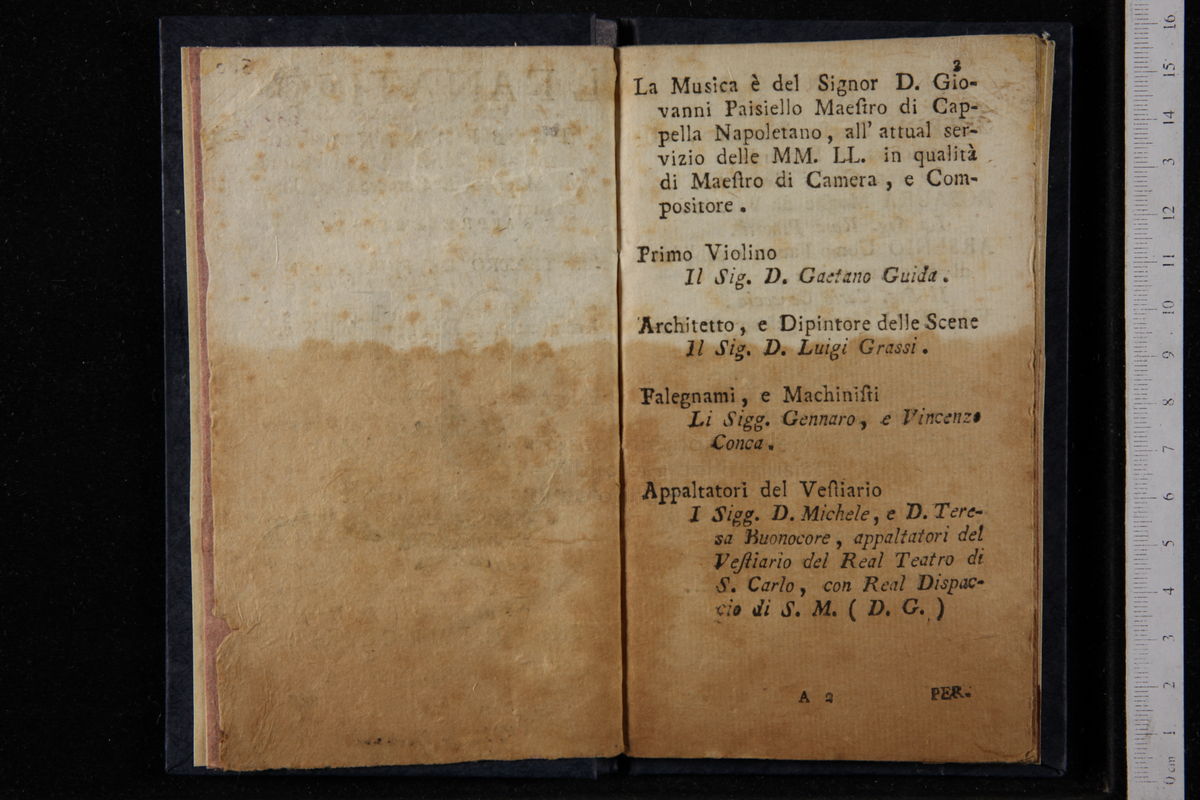 3
La Musica è del Signor D. Gio-
vanni Paisiello Maeſtro di Cap-
pella Napoletano, all' attual ser-
vizio delle MM. LL. in qualità
di Maeſtro di Camera, e Com-
positore.
Primo Violino
Il Sig. D. Gaetano Guida.
Architetto, e Dipintore delle Scene
Il Sig. D. Luigi Grassi.
Falegnami, e Machiniſti
Li Sigg. Gennaro, e Vincenzo
Conca.
Appaltatori del Veſtiario
I Sigg. D. Michele, e D. Tere-
sa Buonocore, appaltatori del
Veſtiario del Real Teatro di
S. Carlo, con Real Dispac-
cio di S. M. ( D. G. )
A 2 PER-
16
15
14
13
12
11
10
9
8
7
6
5
4
3
2
1
0 cm